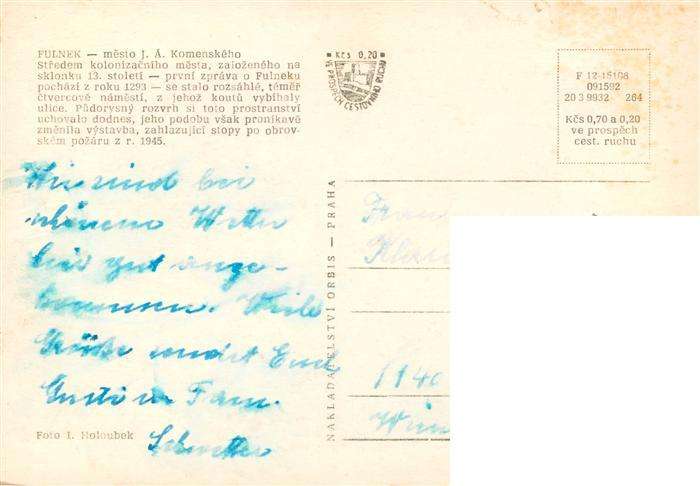 FULNEK — město J. A. Komenského
Středem kolonizačního města, založeného na
sklonku 13. století — první zpráva o Fulneku
pochází z roku 1293 — se stalo rozsáhlé, téměř
čtvercové náměstí, z jehož koutů vybíhaly
ulice. Půdorysný rozvrh si toto prostranství
uchovalo dodnes, jeho podobu však pronikavě
změnila výstavba, zahlazující stopy po obrov-
ském požáru z r. 1945.
Kčs 0,20
VE PROSPĚCH CESTOVNÍHO RUCHU
F 12-15108
091592
20 3 9932 264
Kčs 0,70 a 0,20
ve prospěch
cest. ruchu
Wir sind bei
schönem Wetter
hier gut ange-
kommen. Viele
Grüße sendet Euch
Gusti u Fam.
NAKLADATELSTVÍ ORBIS — PRAHA
1140
Wien
Foto I. Holoubek